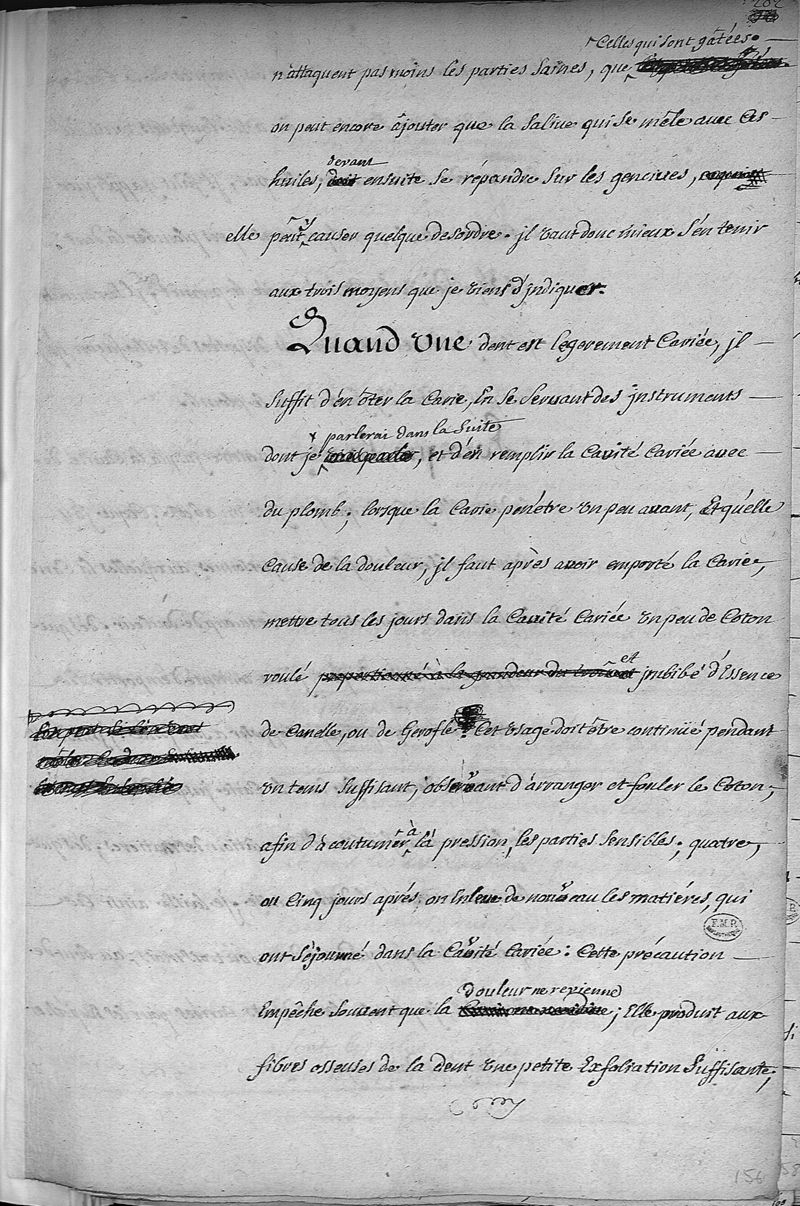 202
Celles qui sont gâtées.
n'attaquent pas moins les parties saines, que
on peut encore ajouter que la Salive qui se mêle avec Ces
devant
huiles, doit ensuite se répandre sur les gencives,
elle peut y causer quelque desordre. il vaut donc mieux s'en tenir
aux trois moyens que je viens d'jndiquer.
Quand une dent est legerement Cariée, jl
suffit d'en ôter la Carie, En se servant des jnstruments
parlerai dans la Suite
dont je vais parler, et d'en remplir la Cavité Cariée avec
du plomb; lorsque la Carie penétre un peu avant, Et qu'elle
Cause de la douleur, jl faut après avoir emporté la Carie,
mettre tous les jours dans la Cavité Cariée un peu de Coton
et
roulé proportionné à la grandeur du trou jmbibé d'Essence
de Canelle, ou de Gerofle. Cet usage doit être continüé pendant
un tems suffisant, observant d'arranger et fouler le Coton,
afin d'acoutumer à la pression, les parties sensibles; quatre,
ou Cinq jours aprés, on Enleve de nouveau les matiéres, qui
ont Séjourné dans la Cavité Cariée: Cette précaution
douleur ne revienne
Empêche souvent que la ; Elle produit aux
fibres osseuses de la dent une petite Exfoliation Suffisante,
156